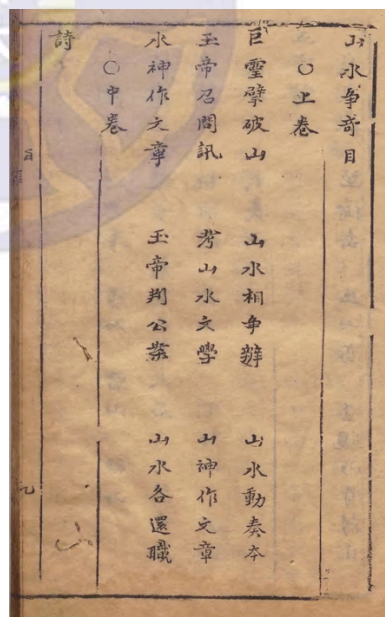 山水争奇目
○上卷
巨靈擘破山 山水相争辦 山水動奏本
玉帝召問訊 考山水文學 山神作文章
水神作文章 玉帝判公案 山水各還職
○中卷
詩